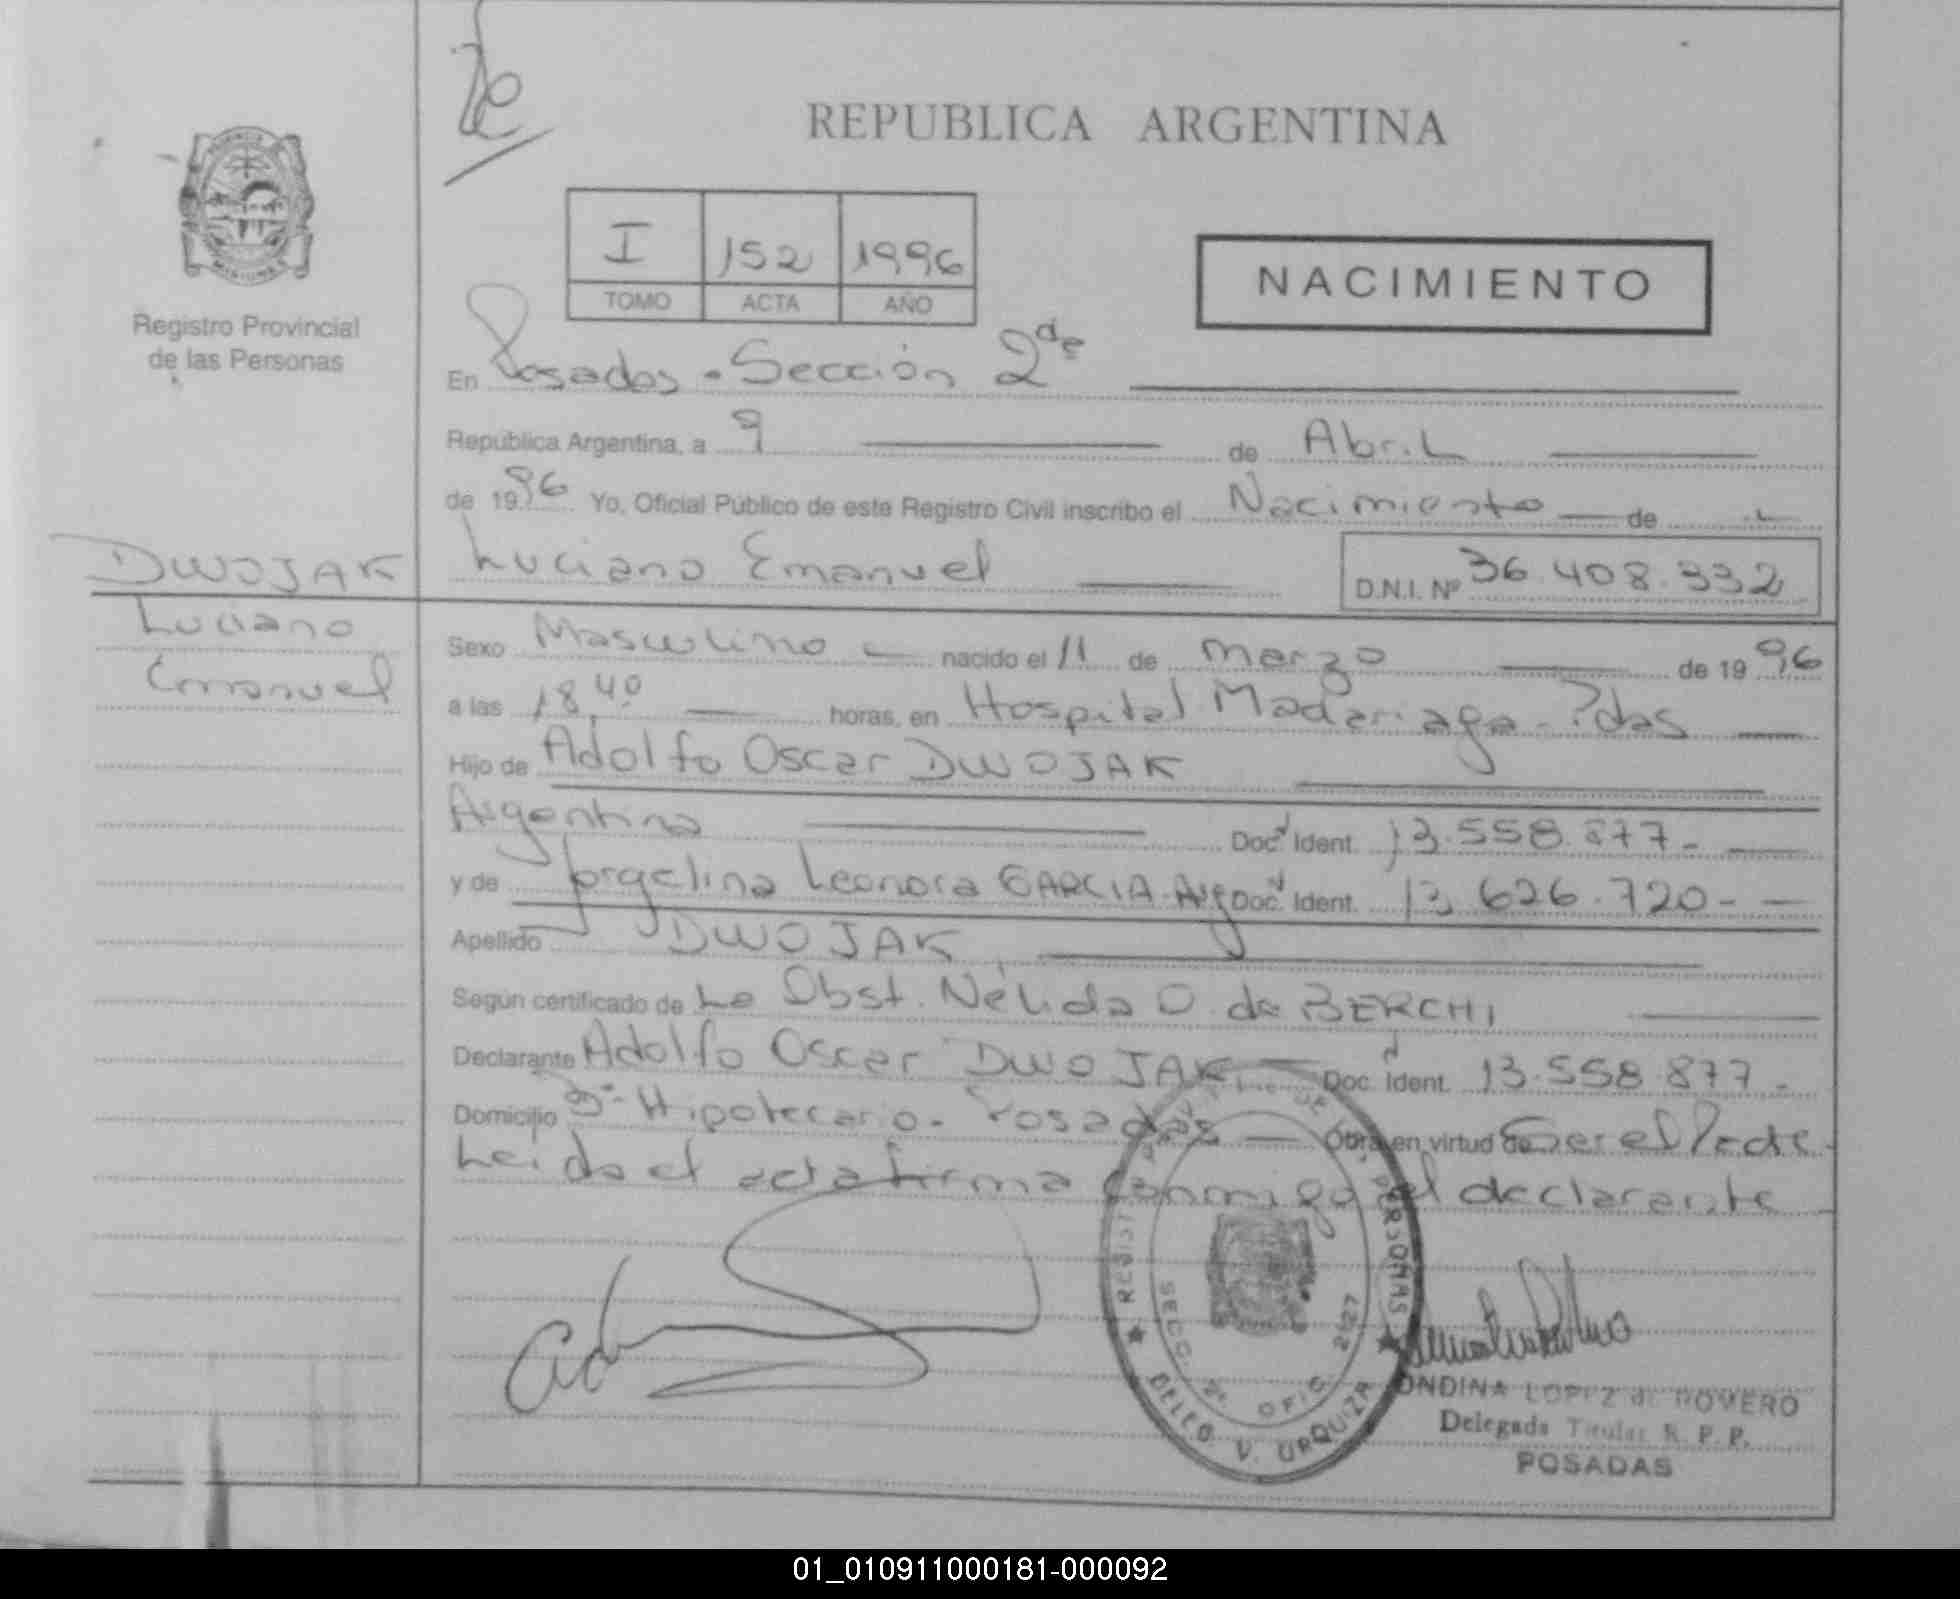 REPUBLICA ARGENTINA
I 152 1996
TOMO ACTA AÑO
NACIMIENTO
MISIONES
Registro Provincial
de las Personas
En Posadas - Sección 2da
República Argentina, a 9 de Abril
de 1996 Yo, Oficial Público de este Registro Civil inscribo el Nacimiento de
DWOJAK
Luciano
Emanuel
Luciano Emanuel D.N.I. Nº 36.408.332
Sexo Masculino nacido el 11 de marzo de 1996
a las 18,40 horas, en Hospital Madariaga - Pdas
Hijo de Adolfo Oscar DWOJAK
Argentino Doc. Ident. 13.558.877-
y de Jorgelina Leonora GARCIA-Arg Doc. Ident. 13.626.720-
Apellido DWOJAK
Según certificado de La Obst. Nélida O. de BERCHI
Declarante Adolfo Oscar DWOJAK Doc. Ident. 13.558.877-
Domicilio Bº Hipotecario - Posadas Obra en virtud de Ser el Padre-
Leida el acta firma conmigo el declarante
PERSONAS
SECC. 2ª OFIC. 2127
DELEG. V. URQUIZA
ONDINA LOPEZ de ROMERO
Delegada Titular R. P. P.
POSADAS
01_010911000181-000092